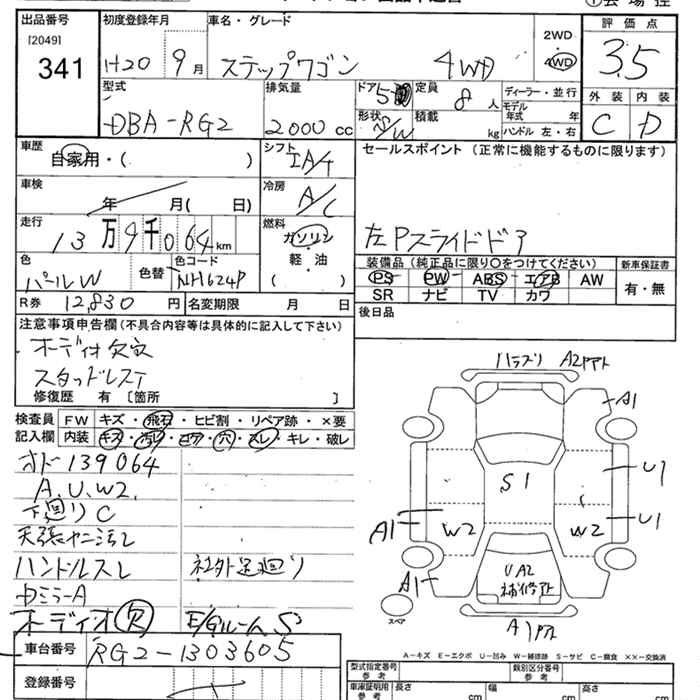 出品番号
[2049]
341
初度登録年月
H20 9月
車名・グレード
ステップワゴン 4WD
2WD
4WD
評価点
3.5
型式
DBA-RG2
排気量
2000 cc
ドア 5
形状 S/W
定員
8人
積載
kg
ディーラー・並行
モデル年式 年
ハンドル 左・右
外装 内装
C D
車歴
自家用・( )
シフト
IA/T
セールスポイント (正常に機能するものに限ります)
車検
年 月( 日)
冷房
A/C
走行
13万9千064km
燃料
ガソリン
軽・油
( )
左Pスライドドア
色
パールW
色替
色コード
NH624P
装備品 (純正品に限り○をつけてください)
新車保証書
PS PW ABS エアB AW
有・無
SR ナビ TV カワ
R券 12,830円
名変期限 月 日
後日品
注意事項申告欄(不具合内容等は具体的に記入して下さい)
オーディオ欠穴
スタッドレスT
修復歴 有 [箇所 ]
検査員記入欄
FW キズ・飛石・ヒビ割・リペア跡・×要
内装 キズ・汚レ・コゲ・穴・スレ・キレ・破レ
オド139064
A.U.W2.
下廻りC
天張ヤニ汚レ
ハンドルスレ 社外足廻り
Dミラー A
オーディオ欠 E/GルームS
車台番号
RG2-1303605
登録番号
A2
A1
S1
U1
U1
W2
W2
A1
A1
UA2
補修アト
A1
スペア
A-キズ E-エクボ U-凹み W-補修跡 S-サビ C-腐食 ××-交換済
型式指定番号
参考
類別区分番号
参考
車庫証明用
参考
長さ cm
幅 cm
高さ cm